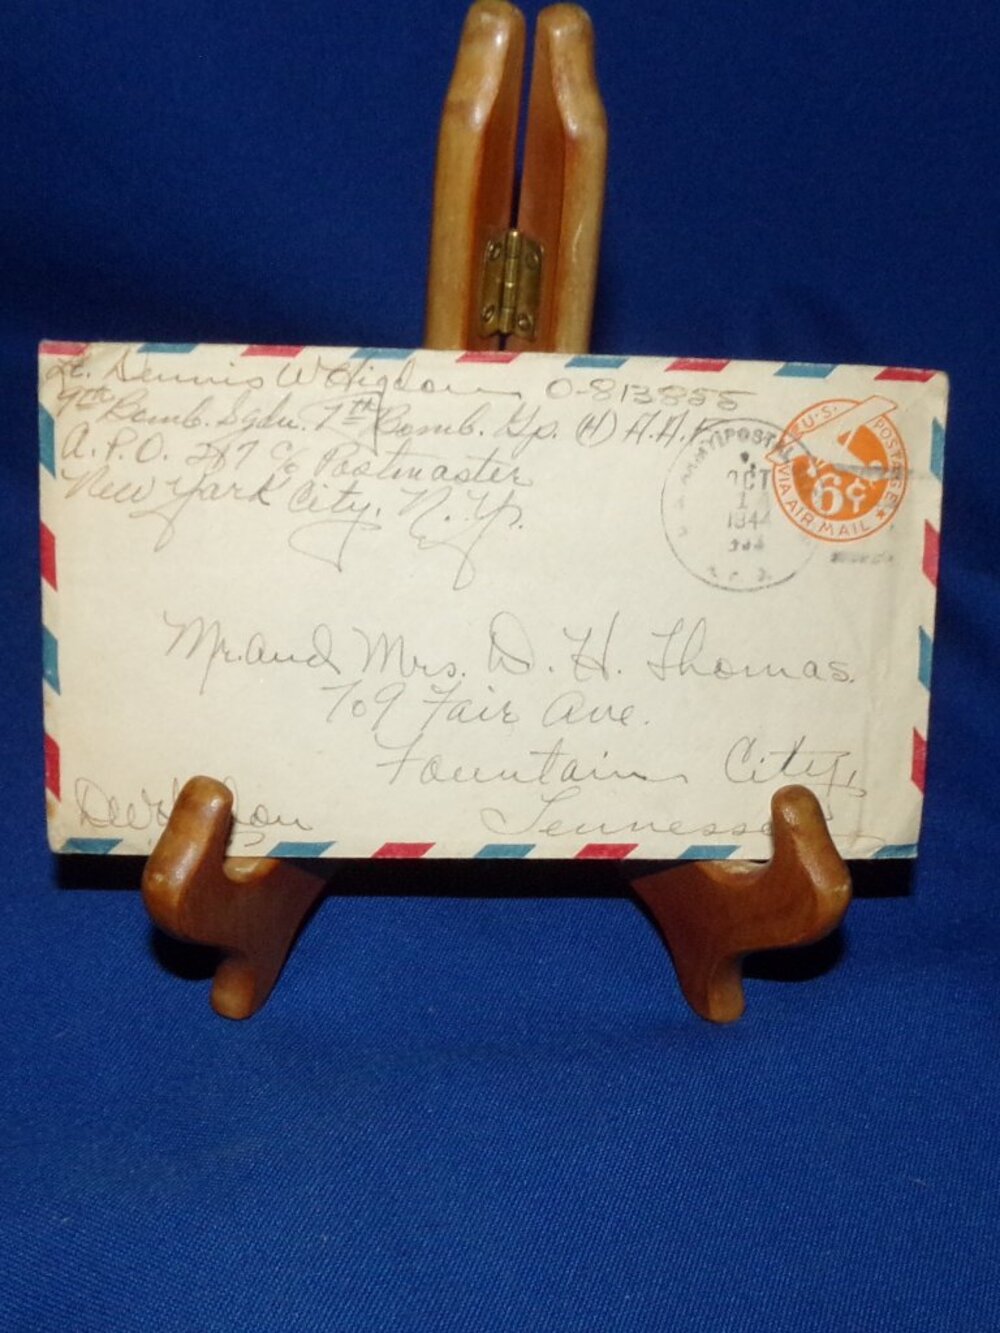 Lt. Dennis W Higdon O-813855
9th Bomb. Sqdn. 7th Bomb. Gp. (H) A.A.F
A.P.O. c/o Postmaster
New York City, N.Y.
U.S. POSTAGE
VIA AIR MAIL
6¢
POSTAL
OCT
1
1944
Mr. and Mrs. D. H. Thomas.
709 Fair Ave.
Fountain City,
Tennessee